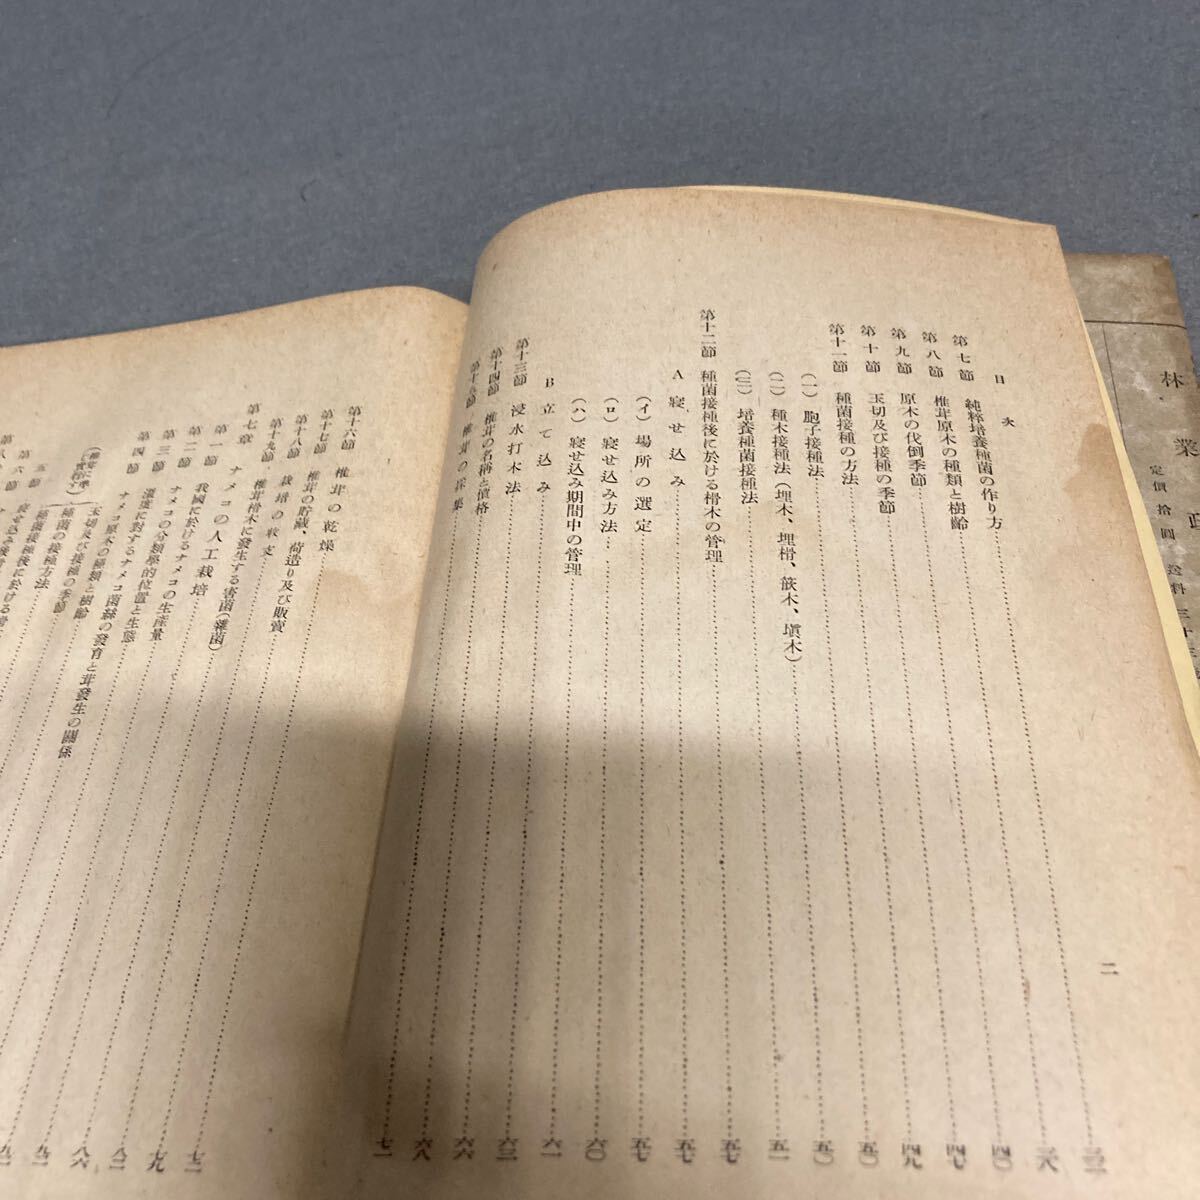 目次
二
第七節 純粋培養種菌の作り方
第八節 椎茸原木の種類と樹齡
第九節 原木の伐倒季節
第十節 玉切及び接種の季節
第十一節 種菌接種の方法
(一) 胞子接種法
(二) 種木接種法(埋木、埋榾、嵌木、塡木)
(三) 培養種菌接種法
第十二節 種菌接種後に於ける榾木の管理
A 寢せ込み
(イ) 場所の選定
(ロ) 寢せ込み方法
(ハ) 寢せ込み期間中の管理
B 立て込み
第十三節 浸水打木法
第十四節 椎茸の名稱と價格
第十五節 椎茸の採集
四〇
四七
四九
五〇
五〇
五一
五七
五七
五七
六〇
六一
六三
六六
六八
七一
第十六節 椎茸の乾燥
第十七節 椎茸の貯藏、荷造り及び販賣
第十八節 栽培の收支
第十九節 椎茸榾木に發生する害菌(雜菌)
第七章 ナメコの人工栽培
第一節 我國に於けるナメコの生産量
第二節 ナメコの分類學的位置と生態
第三節 溫度に對するナメコ菌絲の發育と茸發生の關係
第四節 ナメコ原木の種類と樹齡
玉切及び接種の季節
種菌の接種方法
林業
定價拾圓 送料